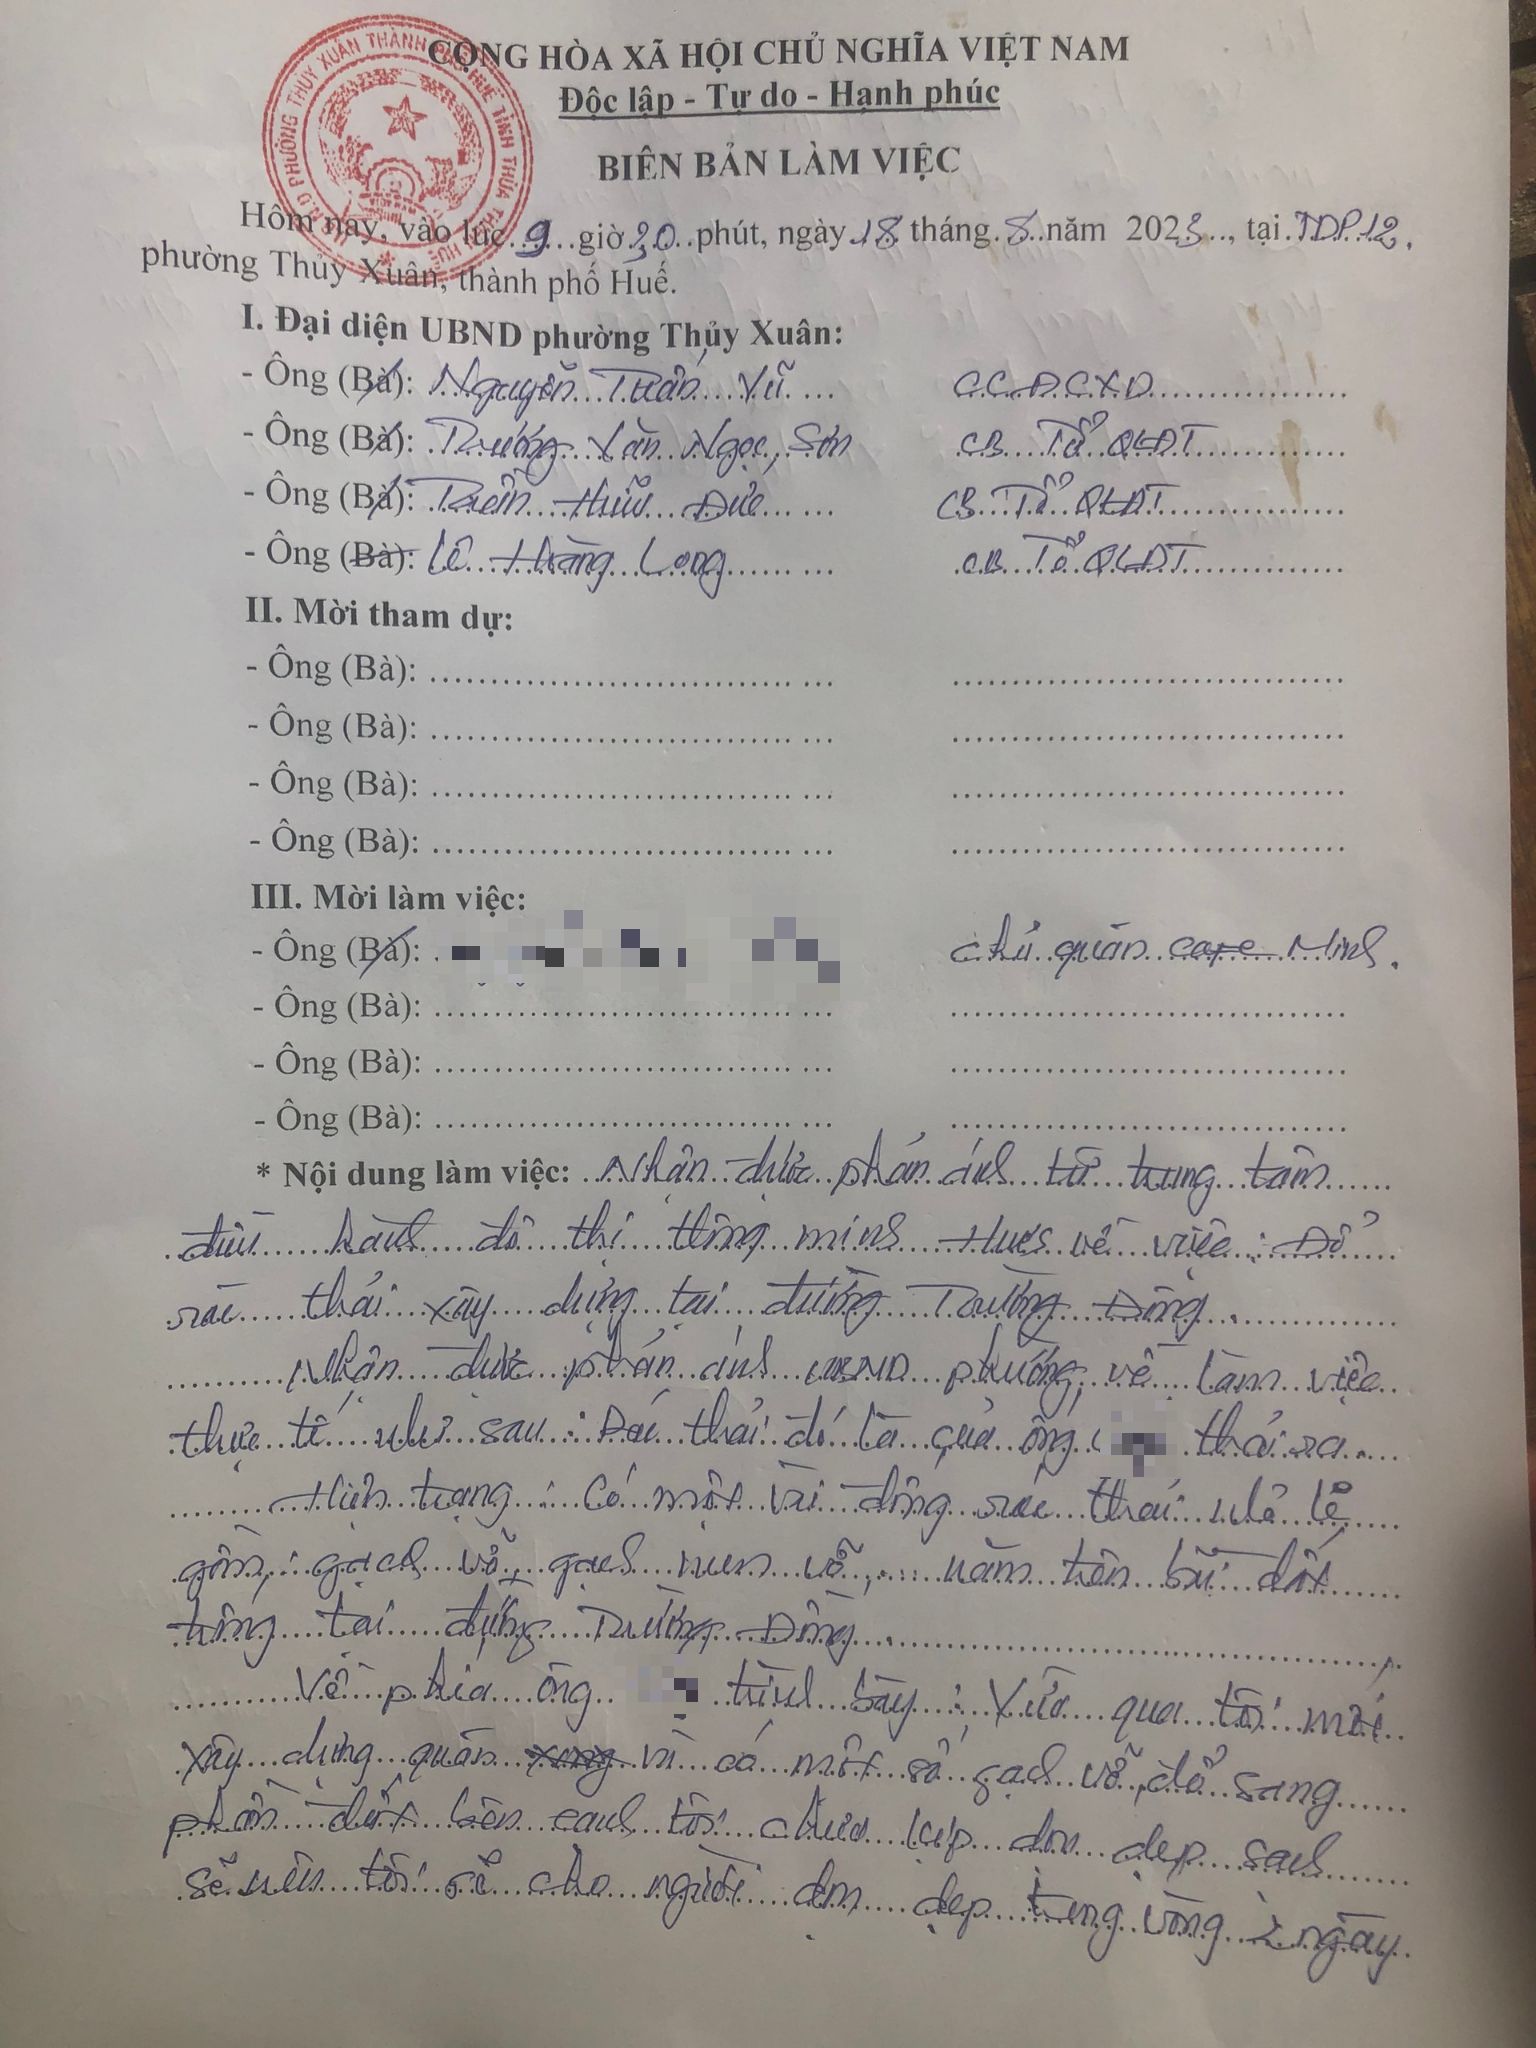 CỘNG HÒA XÃ HỘI CHỦ NGHĨA VIỆT NAM
Độc lập - Tự do - Hạnh phúc
BIÊN BẢN LÀM VIỆC
Hôm nay, vào lúc 9 giờ 30 phút, ngày 18 tháng 8 năm 2023, tại TDP 12,
phường Thủy Xuân, thành phố Huế.
I. Đại diện UBND phường Thủy Xuân:
- Ông (Bà): Nguyễn Tuấn Vũ CC ĐCXD
- Ông (Bà): Trương Văn Ngọc Sơn CB Tổ QLĐT
- Ông (Bà): Trần Hữu Đức CB Tổ QLĐT
- Ông (Bà): Lê Hoàng Long CB Tổ QLĐT
II. Mời tham dự:
- Ông (Bà):
- Ông (Bà):
- Ông (Bà):
- Ông (Bà):
III. Mời làm việc:
- Ông (Bà): chủ quán cafe Minh.
- Ông (Bà):
- Ông (Bà):
- Ông (Bà):
* Nội dung làm việc: Nhận được phản ánh từ trung tâm
điều hành đô thị thông minh HueS về việc: Đổ
rác thải xây dựng tại đường Trường Đồng.
Nhận được phản ánh UBND phường, về làm việc
thực tế như sau: thải đó là của ông thải ra
Hiện trạng: Có một vài đống rác thải nhỏ lẻ
gồm: gạch vỡ, gạch men vỡ, nằm trên bãi đất
trống tại đường Trường Đồng
Về phía ông trình bày: Vừa qua tôi mới
xây dựng quán vì có một số gạch vỡ, đổ sang
phần đất bên cạnh tôi chưa kịp dọn dẹp sạch
sẽ nên tôi sẽ cho người dọn dẹp trong vòng 2 ngày